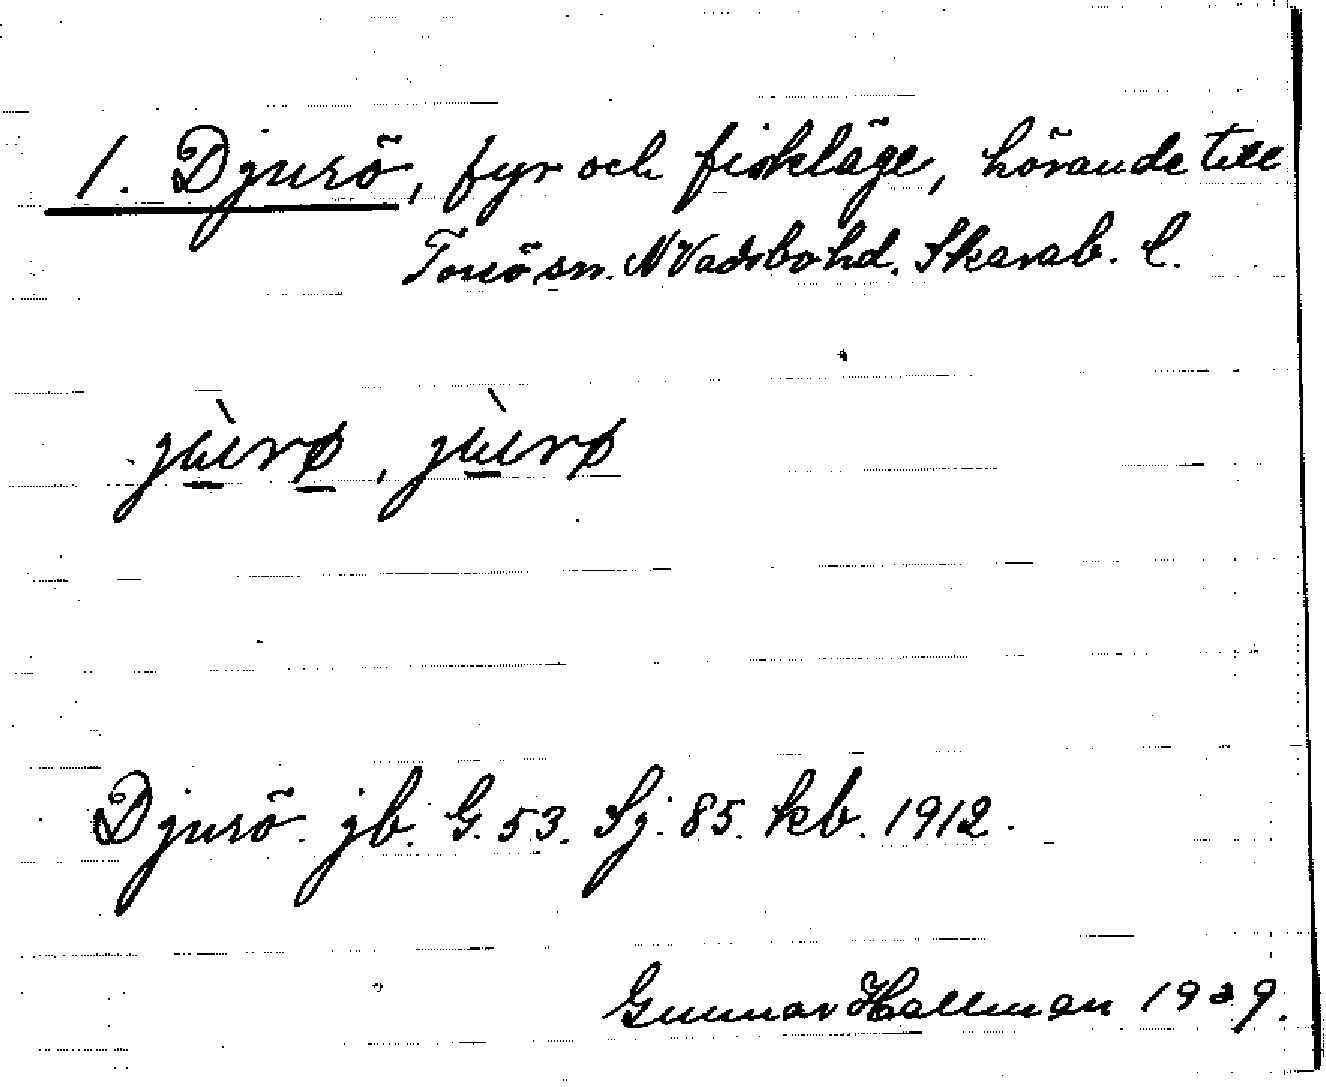 1. Djurö, fyr och fiskläge, hörande till
Torsö sn. N Vadsbo hd. Skarab. l.
Djurö. jb. G. 53. Sj. 85. kb. 1912.
Gunnar Hallman 1929.